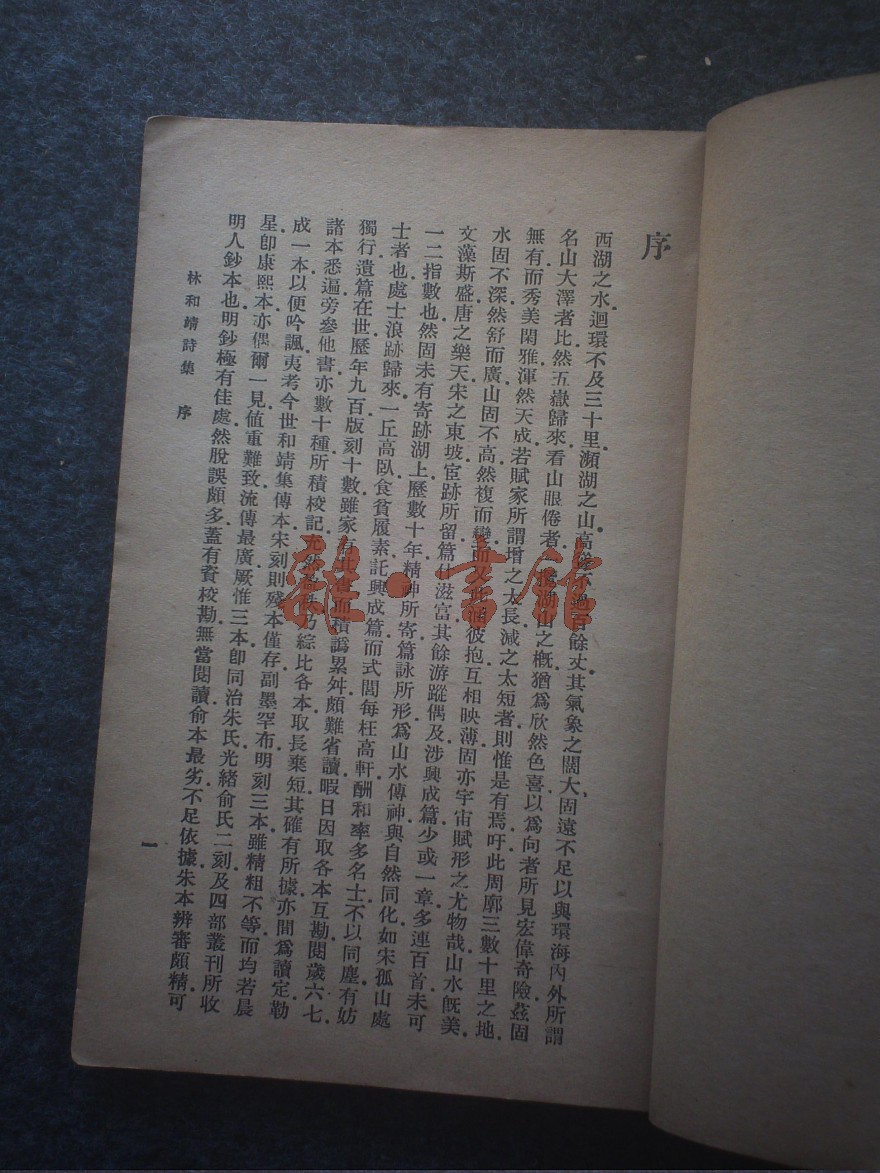 序
西湖之水迴環不及三十里瀕湖之山高不過百餘丈其氣象之闊大固遠不足以與環海內外所謂
名山大澤者比然五嶽歸來看山眼倦者一覽湖山之概猶爲欣然色喜以爲向者所見宏偉奇險茲固
無有而秀美閑雅渾然天成若賦家所謂增之太長減之太短者則惟是有焉吁此周廓三數十里之地
水固不深然舒而廣山固不高然複而變而又此涵彼抱互相映薄固亦宇宙賦形之尤物哉山水旣美
文藻斯盛唐之樂天宋之東坡宦跡所留篇什滋富其餘游蹤偶及涉興成篇少或一章多連百首未可
一二指數也然固未有寄跡湖上歷數十年精神所寄篇詠所形爲山水傳神與自然同化如宋孤山處
士者也處士浪跡歸來一丘高臥食貧履素託興成篇而式閭每枉高軒酬和率多名士不以同塵有妨
獨行遺篇在世歷年九百版刻十數雖家有其書而積譌累舛頗難省讀暇日因取各本互勘閱歲六七
諸本悉遍旁參他書亦數十種所積校記充然盈帙乃綜比各本取長棄短其確有所據亦間爲讀定勒
成一本以便吟諷夷考今世和靖集傳本宋刻則殘本僅存副墨罕布明刻三本雖精粗不等而均若晨
星卽康熙本亦偶爾一見値重難致流傳最廣厥惟三本卽同治朱氏光緒俞氏二刻及四部叢刊所收
明人鈔本也明鈔極有佳處然脫誤頗多蓋有資校勘無當閱讀俞本最劣不足依據朱本辨審頗精可
林和靖詩集 序
一
雜·書館